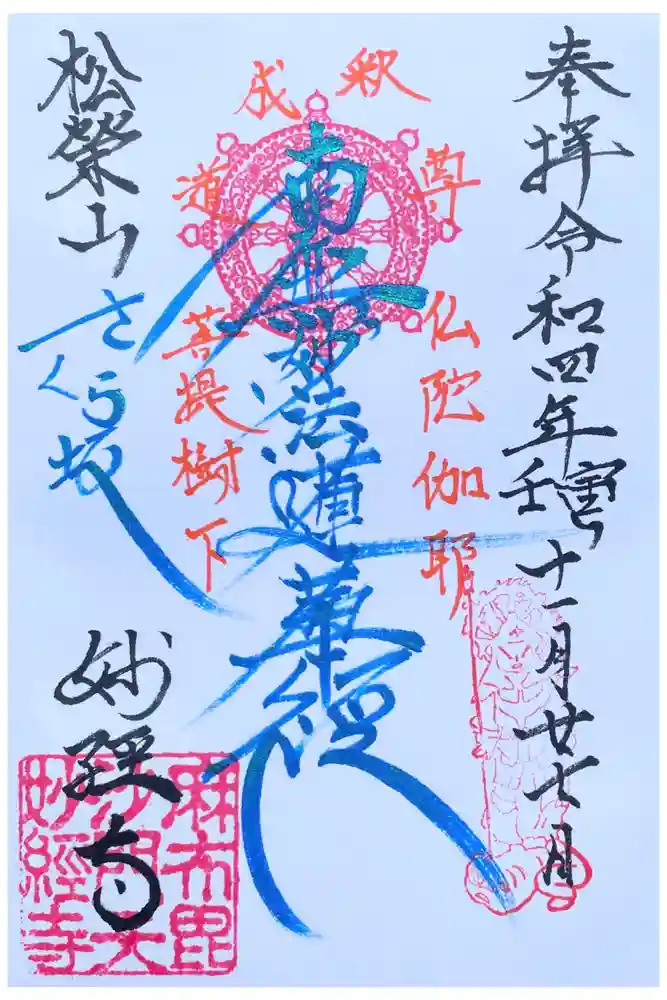 奉拝令和四年壬寅十一月廿七日
釈尊
仏陀伽耶
南無妙法蓮華経
成道
菩提樹下
松榮山
さくら坂
妙経寺
麻布毘
沙門天
妙經寺